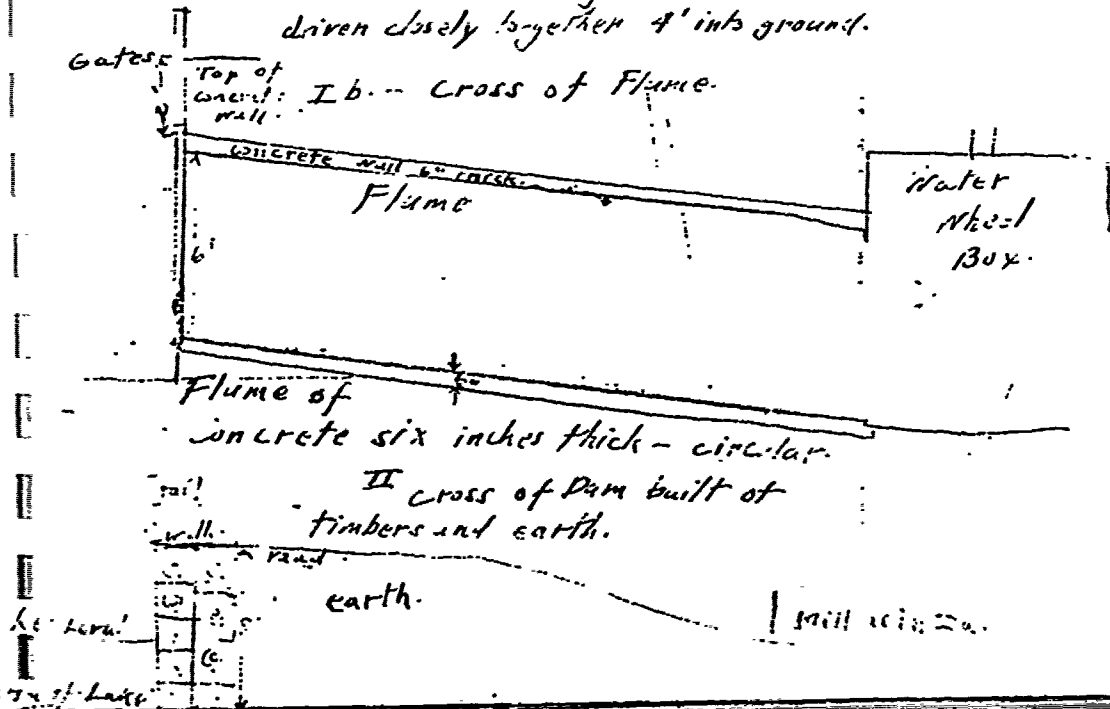 driven closely together 4' into ground.
Gates
Top of
concrete
wall.
I b. -- Cross of Flume.
concrete wall 6" thick.
Flume
Water
Wheel
Box.
6'
6"
Flume of
concrete six inches thick – circular.
II cross of Dam built of
timbers and earth.
rail
wall.
road
earth.
Mill